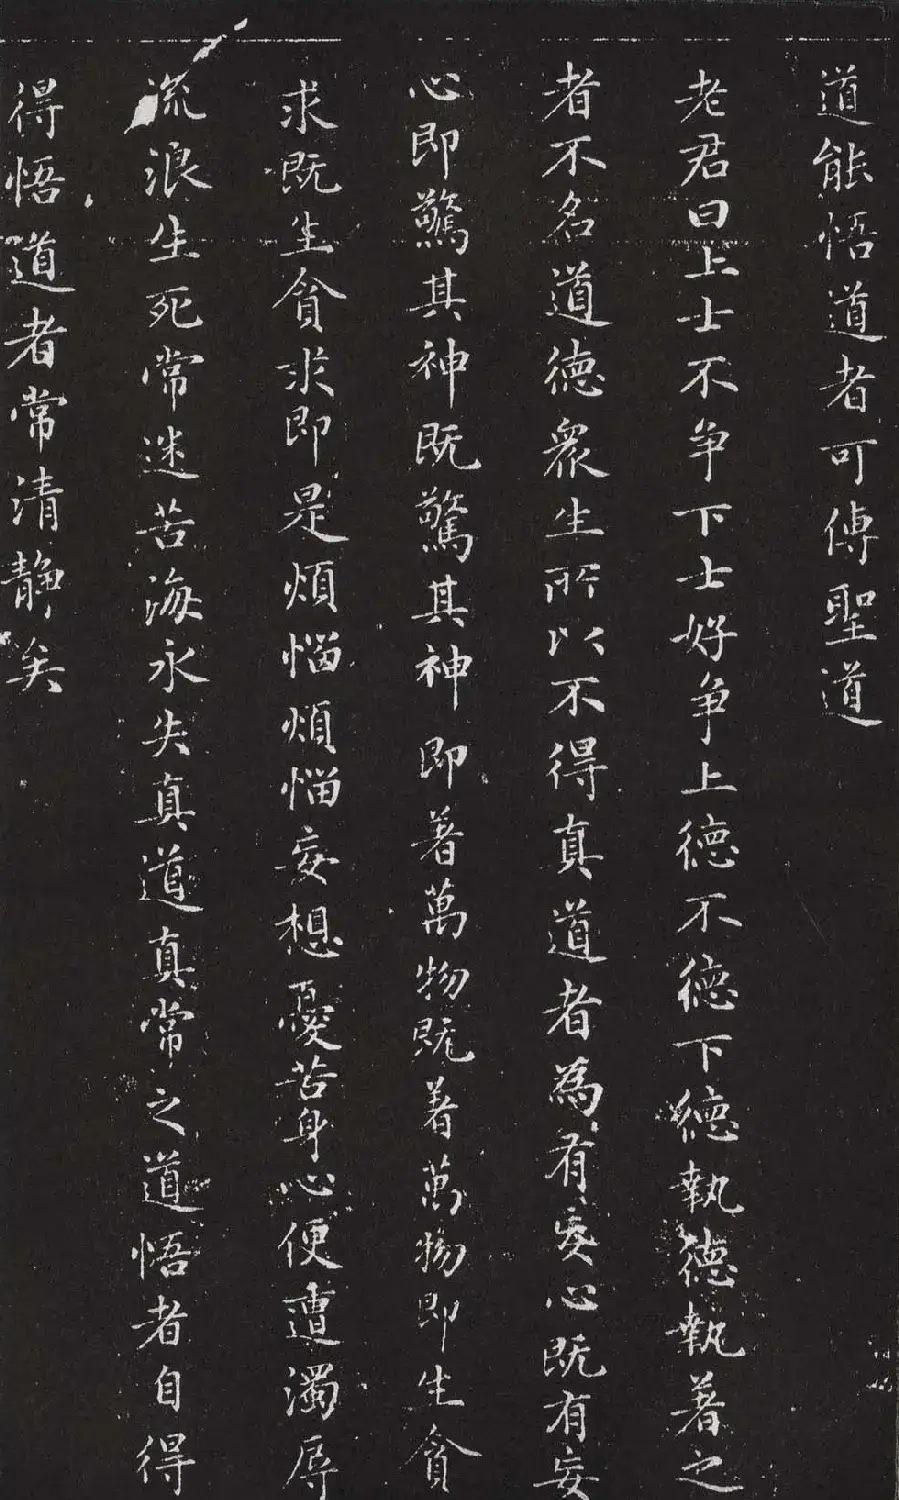 道能悟道者可傳聖道
老君曰上士不争下士好争上德不德下德執德執著之
者不名道德衆生所以不得真道者為有妄心既有妄
心即驚其神既驚其神即著萬物既著萬物即生貪
求既生貪求即是煩惱煩惱妄想憂苦身心便遭濁辱
流浪生死常迷苦海永失真道真常之道悟者自得
得悟道者常清静矣